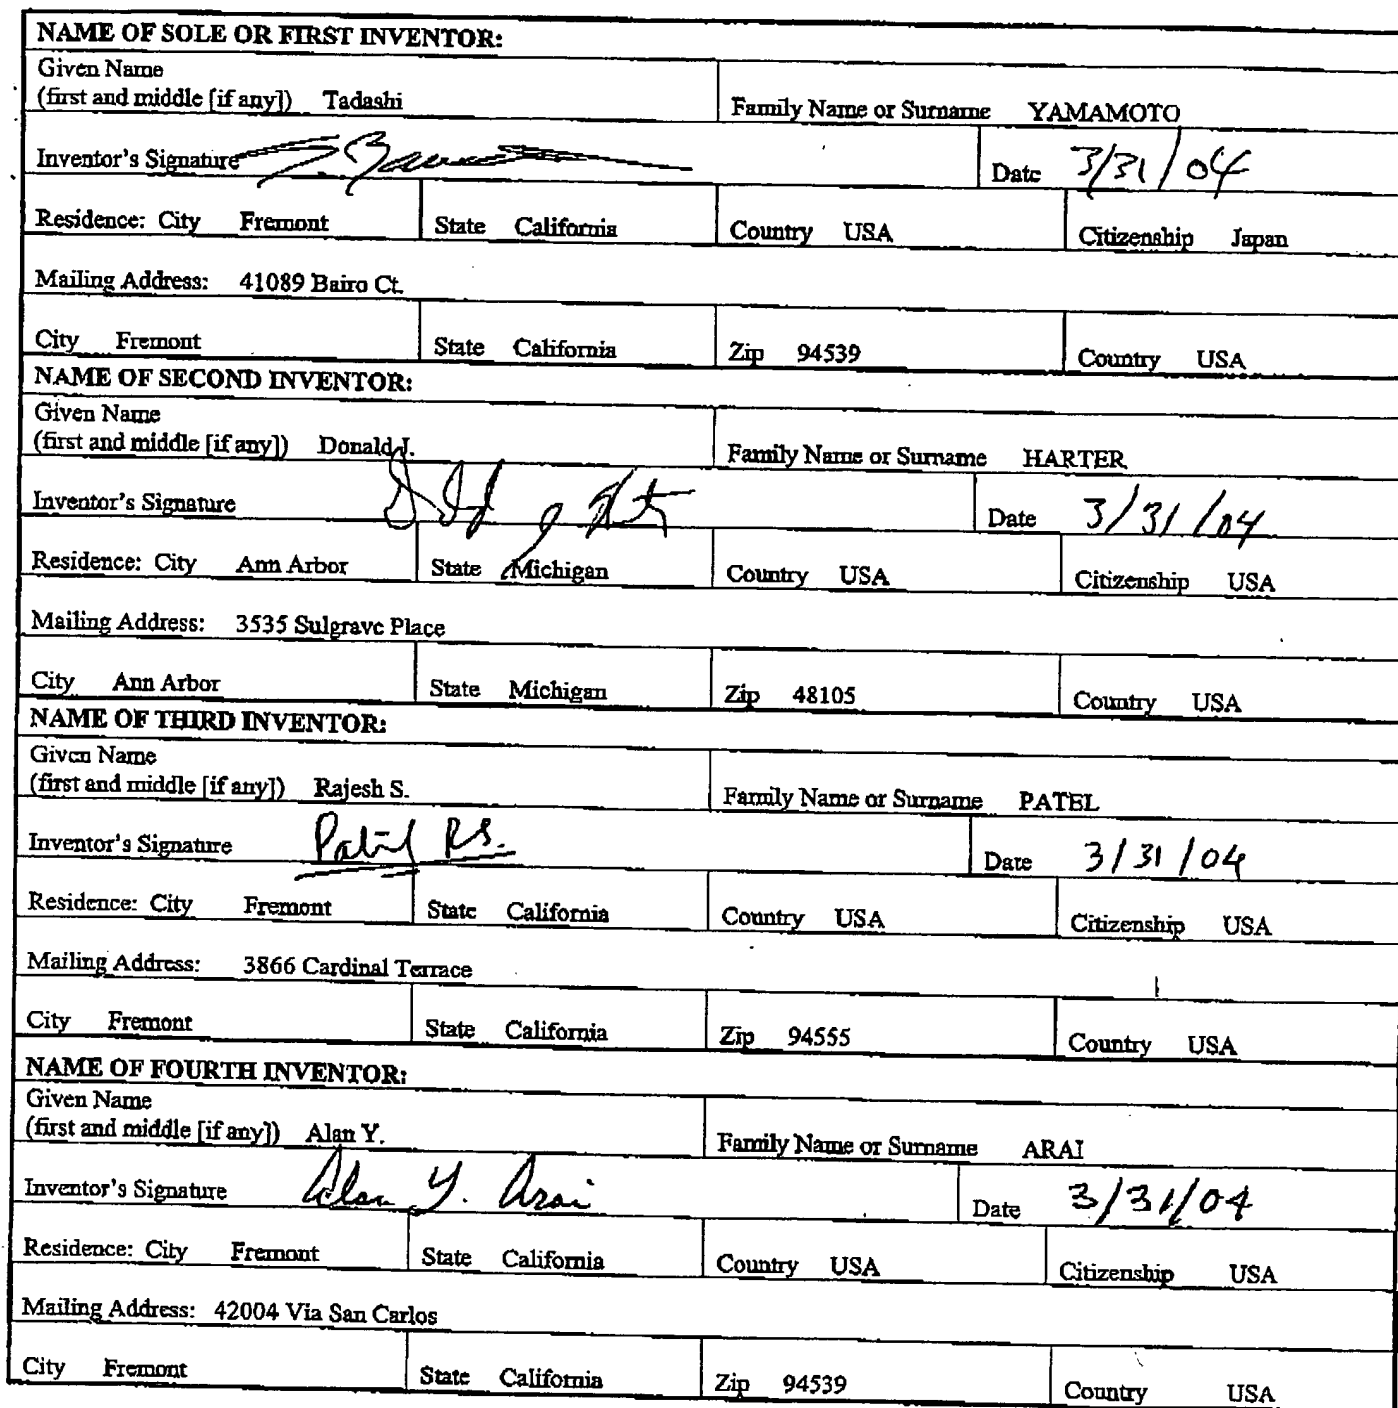 NAME OF SOLE OR FIRST INVENTOR:
Given Name
(first and middle [if any]) Tadashi Family Name or Surname YAMAMOTO
Inventor's Signature Date 3/31/04
Residence: City Fremont State California Country USA Citizenship Japan
Mailing Address: 41089 Bairo Ct.
City Fremont State California Zip 94539 Country USA
NAME OF SECOND INVENTOR:
Given Name
(first and middle [if any]) Donald J. Family Name or Surname HARTER
Inventor's Signature Date 3/31/04
Residence: City Ann Arbor State Michigan Country USA Citizenship USA
Mailing Address: 3535 Sulgrave Place
City Ann Arbor State Michigan Zip 48105 Country USA
NAME OF THIRD INVENTOR:
Given Name
(first and middle [if any]) Rajesh S. Family Name or Surname PATEL
Inventor's Signature Patel R.S. Date 3/31/04
Residence: City Fremont State California Country USA Citizenship USA
Mailing Address: 3866 Cardinal Terrace
City Fremont State California Zip 94555 Country USA
NAME OF FOURTH INVENTOR:
Given Name
(first and middle [if any]) Alan Y. Family Name or Surname ARAI
Inventor's Signature Alan Y. Arai Date 3/31/04
Residence: City Fremont State California Country USA Citizenship USA
Mailing Address: 42004 Via San Carlos
City Fremont State California Zip 94539 Country USA